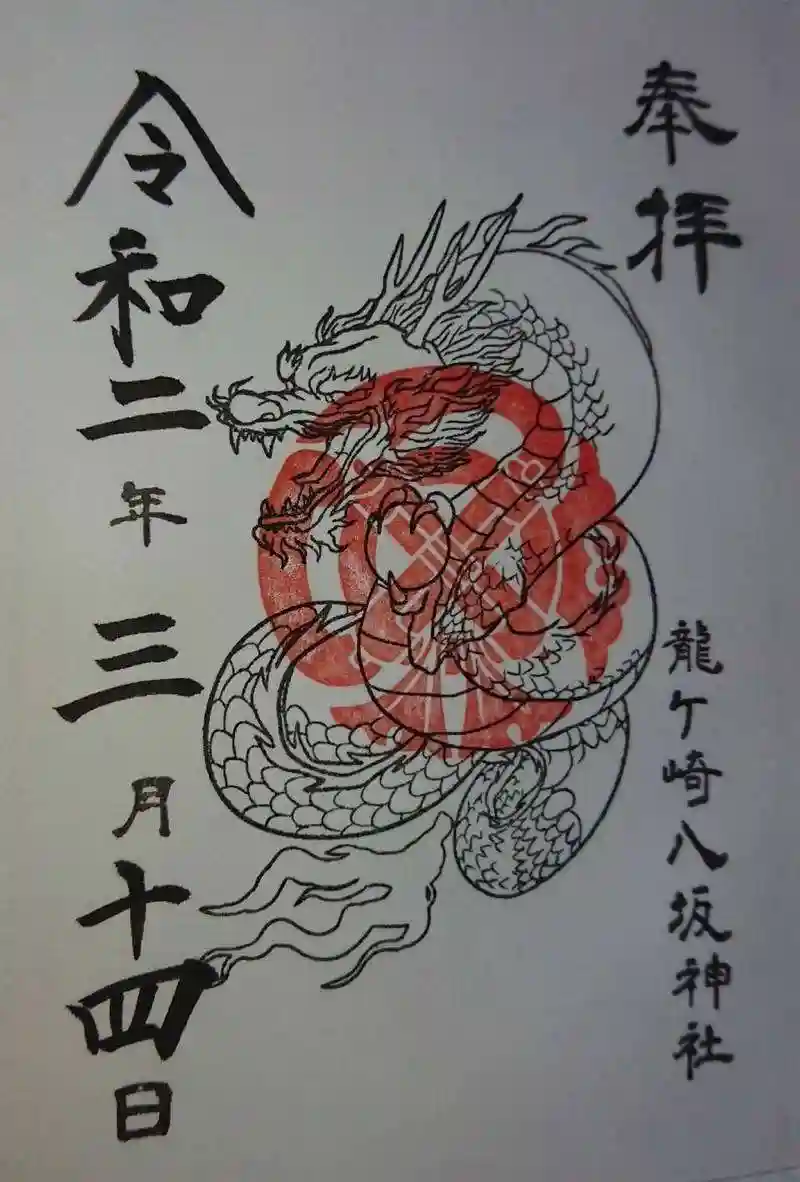 奉拝
龍ケ崎八坂神社
令和二年三月十四日